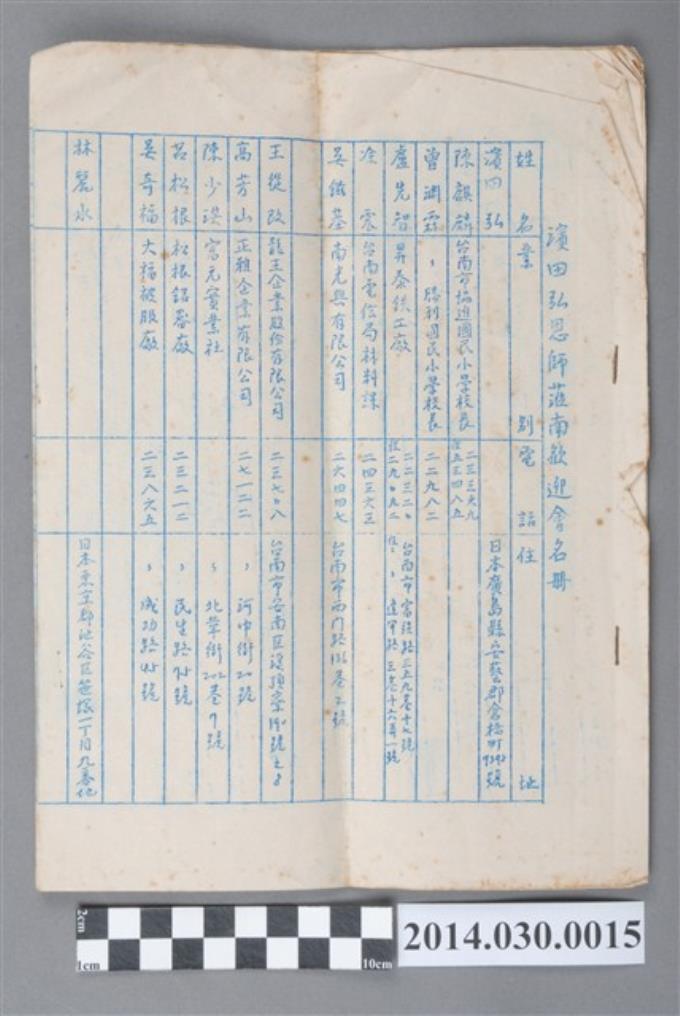 濱田弘恩師蒞南歡迎會名冊
姓名 業別 電話 住址
濱田弘 日本廣島縣安藝郡倉橋町 號
陳麒麟 台南市協進國民小學校長 二三三六九 住五三四八五
曾淵霖 〃 勝利國民小學校長 二二九八二
盧先智 昇泰鉄工廠 二二三二〇 住二九〇九二 台南市富強路三五九巷十七號 住〃建軍路三巷十六弄一號
涂震 台南電信局材料課 二四三六三
吳鎡基 南光興有限公司 二六四四七 台南市西門路 巷 號
王從改 龍王企業股份有限公司 二三七〇八 台南市安南區 頂寮 號之8
高芳山 正雅企業有限公司 二七一二二 〃 河中街20號
陳少 富元實業社 〃 北華街202巷7號
呂松根 松根鋁器廠 二三二一二 〃 民生路 號
吳奇福 大福被服廠 二三八六五 〃 成功路 號
林麗水 日本東京都 谷區笹塚一丁目九番地
2cm
1cm
10cm
2014.030.0015